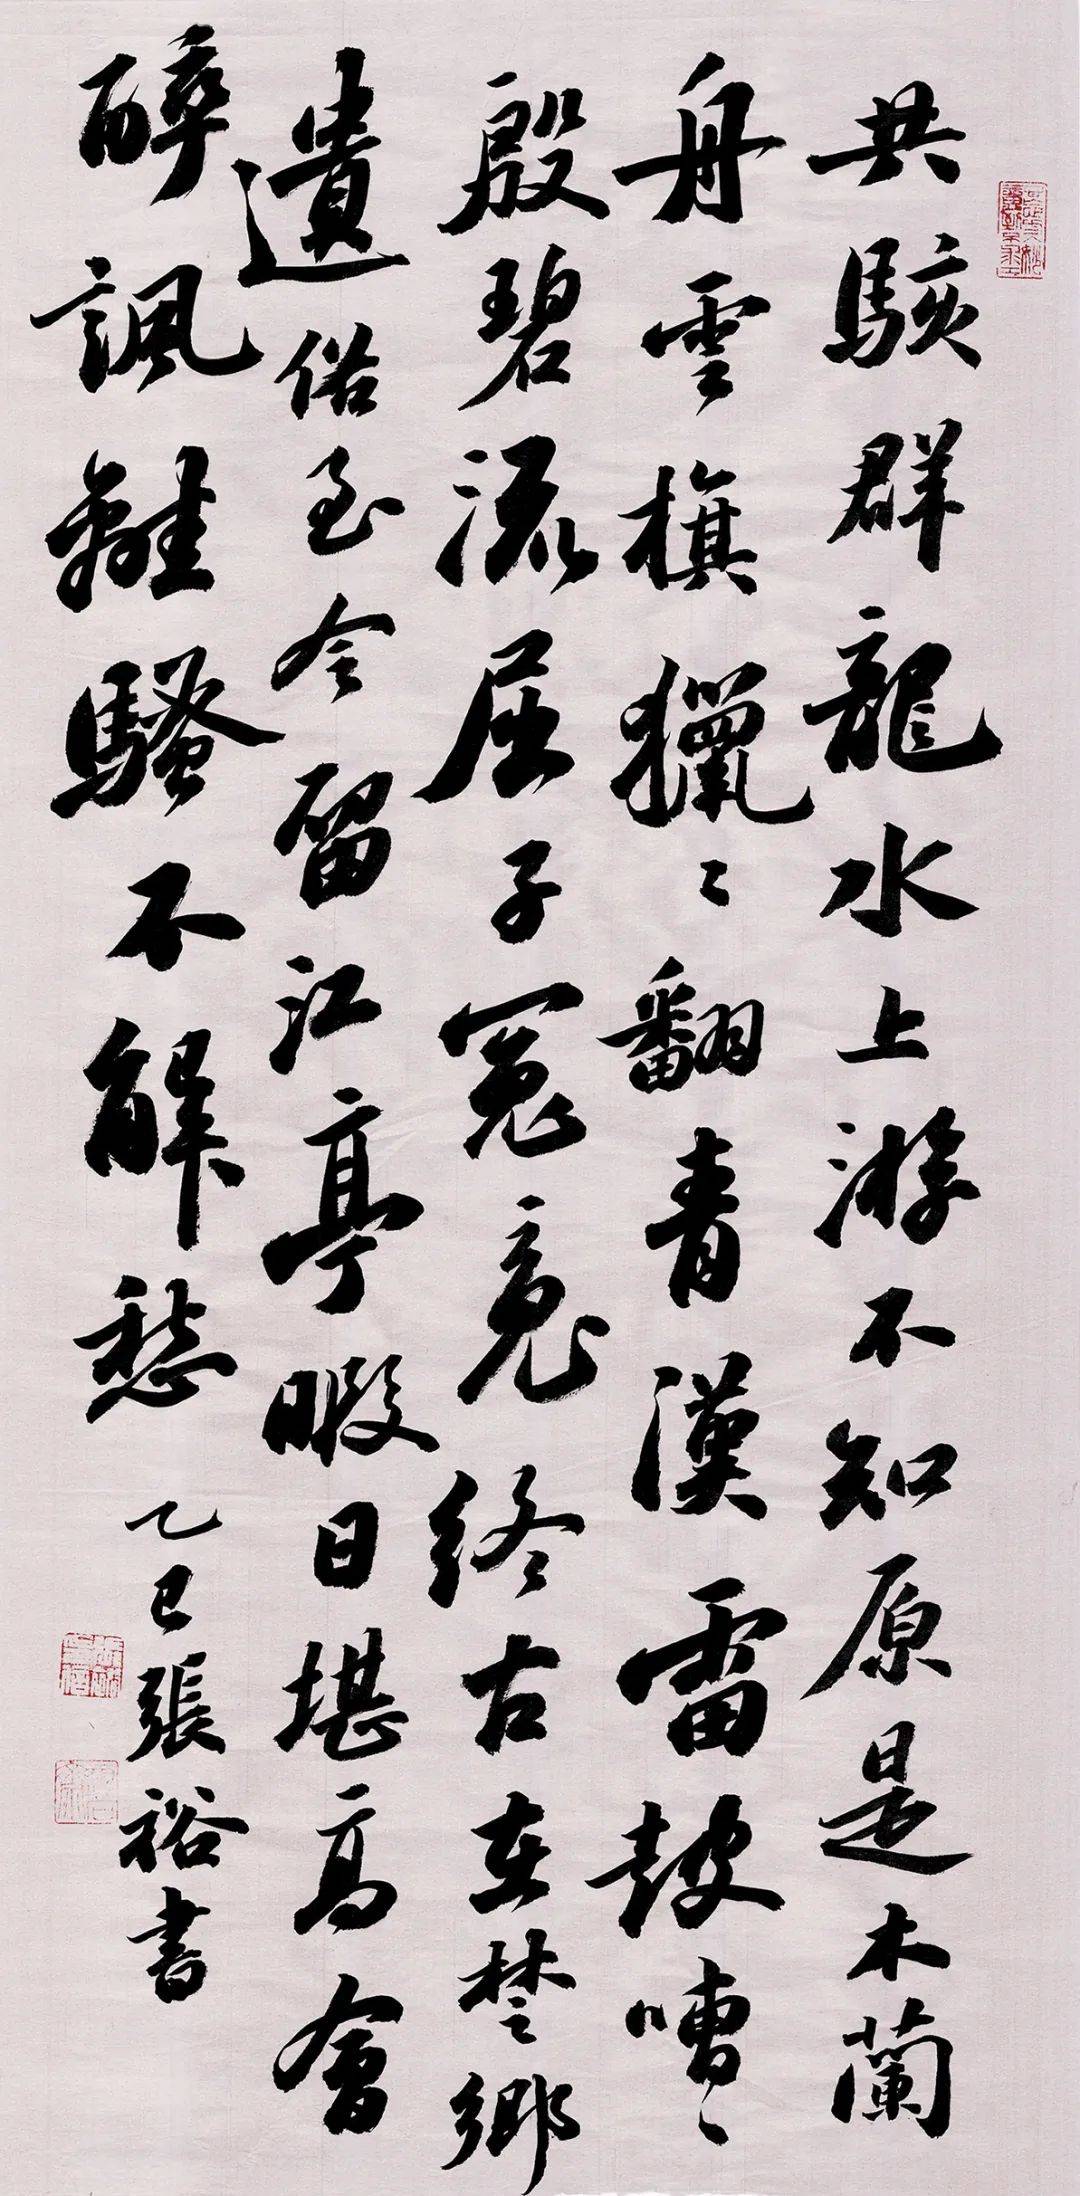 共駭群龍水上游不知原是木蘭
舟雲旗獵〻翻青漢雷鼓嘈〻
殷碧流屈子冤魂終古在楚鄉
遺俗至今留江亭暇日堪高會
醉諷離騷不解愁
乙巳張裕書